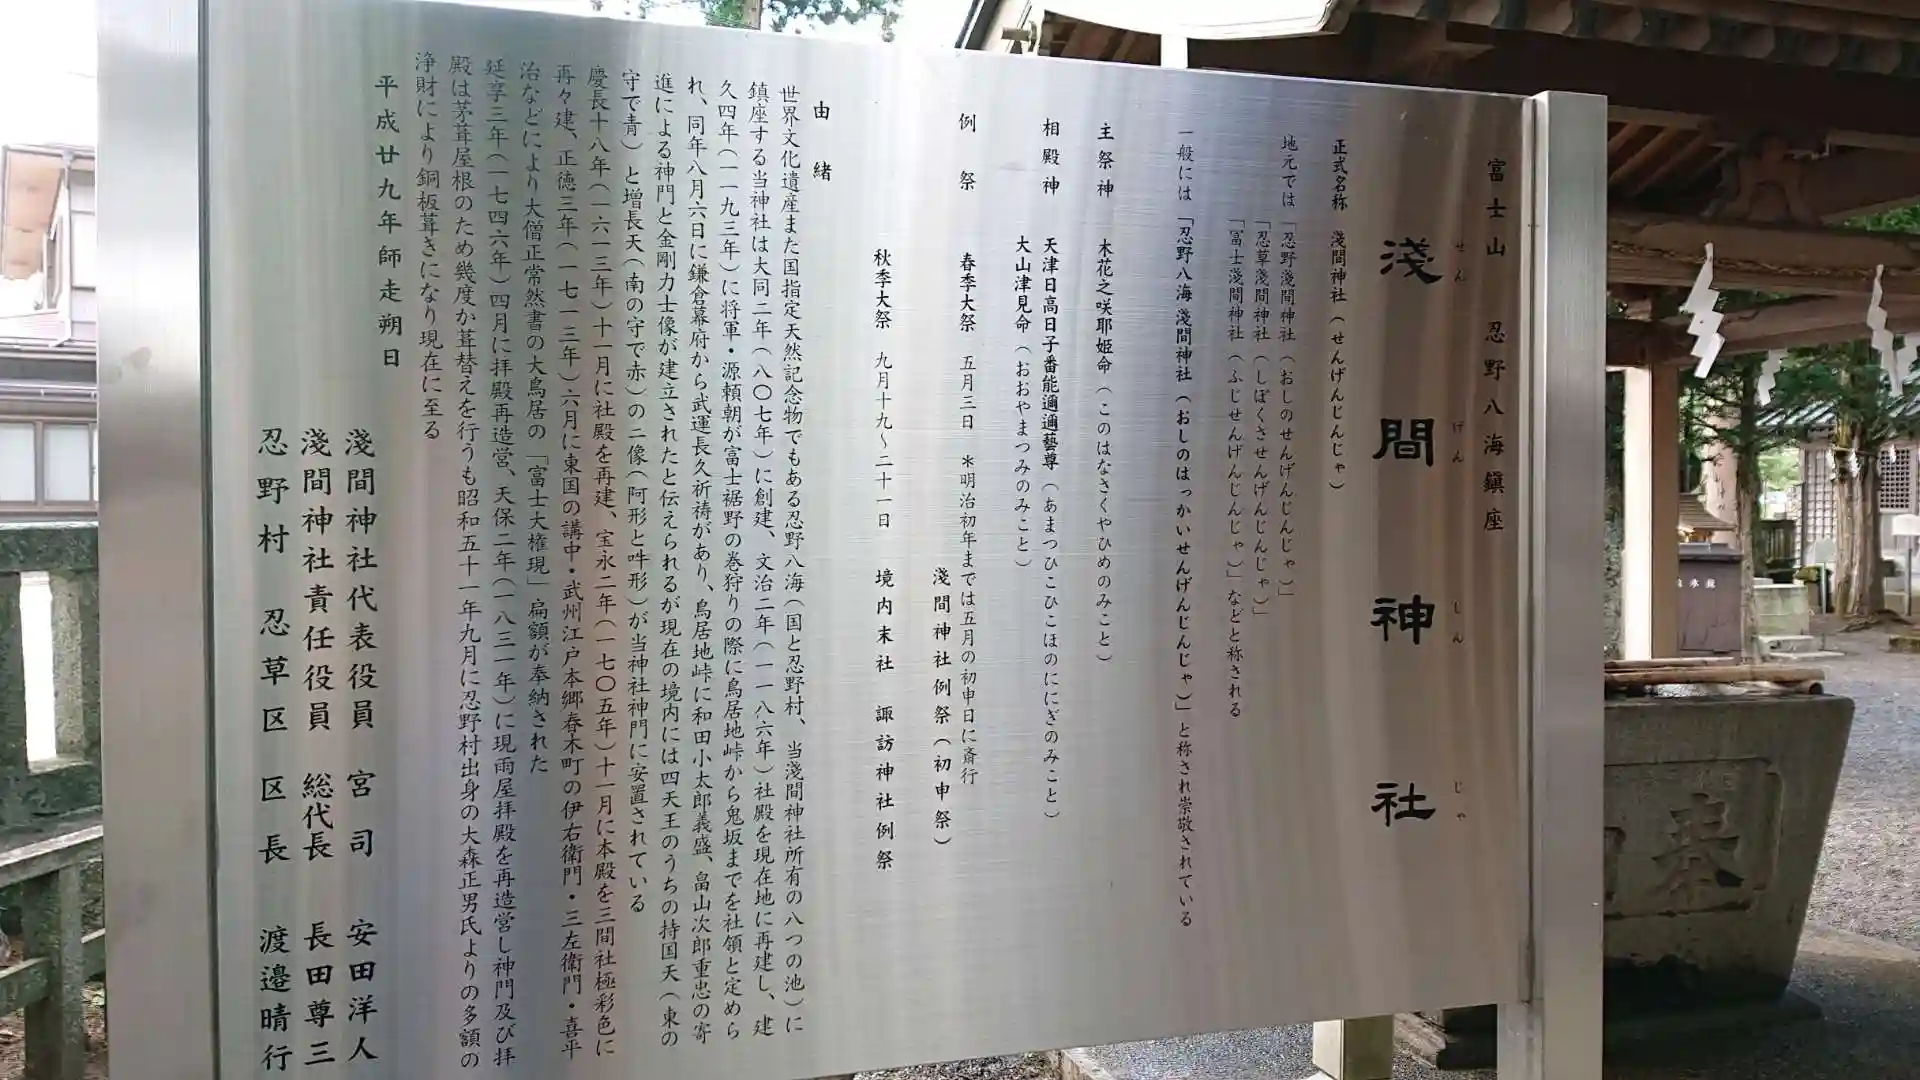 富士山 忍野八海鎮座
淺間神社
せんげんじんじゃ
正式名称 淺間神社(せんげんじんじゃ)
地元では「忍野淺間神社(おしのせんげんじんじゃ)」
「忍草淺間神社(しぼくさせんげんじんじゃ)」
「冨士淺間神社(ふじせんげんじんじゃ)」などと称される
一般には「忍野八海 淺間神社(おしのはっかいせんげんじんじゃ)」と称され崇敬されている
主祭神 木花之咲耶姫命(このはなさくやひめのみこと)
相殿神 天津日高日子番能邇邇藝尊(あまつひこひこほのににぎのみこと)
大山津見命(おおやまつみのみこと)
例祭 春季大祭 五月三日 *明治初年までは五月の初申日に斎行
淺間神社例祭(初申祭)
秋季大祭 九月十九〜二十一日 境内末社 諏訪神社例祭
由緒
世界文化遺産また国指定天然記念物でもある忍野八海(国と忍野村、当淺間神社所有の八つの池)に
鎮座する当神社は大同二年(八〇七年)に創建、文治二年(一一八六年)社殿を現在地に再建し、建
久四年(一一九三年)に将軍・源頼朝が富士裾野の巻狩りの際に鳥居地峠から鬼坂までを社領と定めら
れ、同年八月六日に鎌倉幕府から武運長久祈祷があり、鳥居地峠に和田小太郎義盛、畠山次郎重忠の寄
進による神門と金剛力士像が建立されたと伝えられるが現在の境内には四天王のうちの持国天(東の
守で青)と増長天(南の守で赤)の二像(阿形と吽形)が当神社神門に安置されている
慶長十八年(一六一三年)十一月に社殿を再建、宝永二年(一七〇五年)十一月に本殿を三間社極彩色に
再々建、正徳三年(一七一三年)六月に東国の講中・武州江戸本郷春木町の伊右衛門・三左衛門・喜平
治などにより大僧正常然書の大鳥居の「富士大権現」扁額が奉納された
延享三年(一七四六年)四月に拝殿再造営、天保二年(一八三一年)に現雨屋拝殿を再造営し神門及び拝
殿は茅葺屋根のため幾度か葺替えを行うも昭和五十一年九月に忍野村出身の大森正男氏よりの多額の
浄財により銅板葺きになり現在に至る
平成廿九年師走朔日
淺間神社代表役員 宮司 安田洋人
淺間神社責任役員 総代長 長田尊三
忍野村 忍草区 区長 渡邉晴行
奉